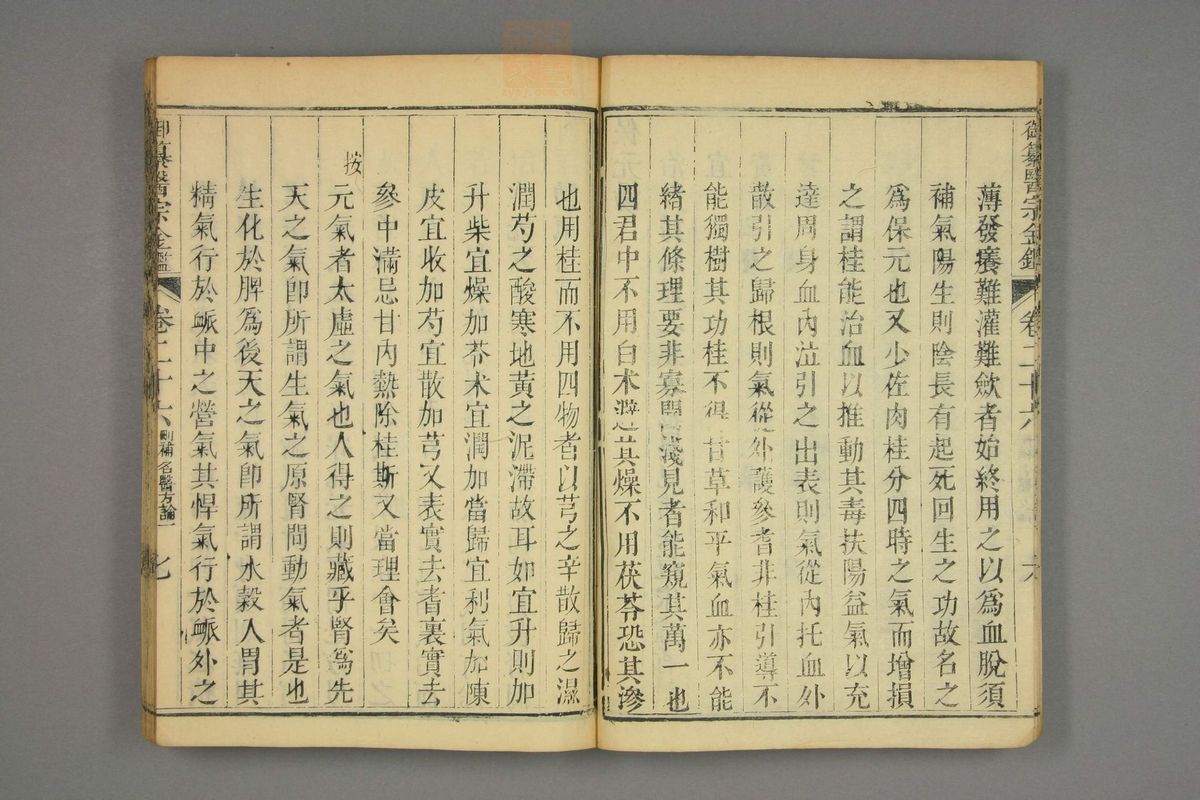 御纂醫宗金鑑 卷二十六 六
薄發癢難灌難斂者始終用之以爲血脫須
補氣陽生則陰長有起死回生之功故名之
爲保元也又少佐肉桂分四時之氣而增損
之謂桂能治血以推動其毒扶陽益氣以充
達周身血內泣引之出表則氣從內托血外
散引之歸根則氣從外護參耆非桂引導不
能獨樹其功桂不得甘草和平氣血亦不能
緒其條理要非寡聞淺見者能窺其萬一也
四君中不用白朮避其燥不用茯苓恐其滲
也用桂而不用四物者以芎之辛散歸之濕
潤芍之酸寒地黃之泥滯故耳如宜升則加
升柴宜燥加苓朮宜潤加當歸宜利氣加陳
皮宜收加芍宜散加芎又表實去耆裏實去
參中滿忌甘內熱除桂斯又當理會矣
按
元氣者太虛之氣也人得之則藏乎腎爲先
天之氣卽所謂生氣之原腎間動氣者是也
生化於脾爲後天之氣卽所謂水穀入胃其
精氣行於脈中之營氣其悍氣行於脈外之
御纂醫宗金鑑 卷二十六 刪補名醫方論一 七